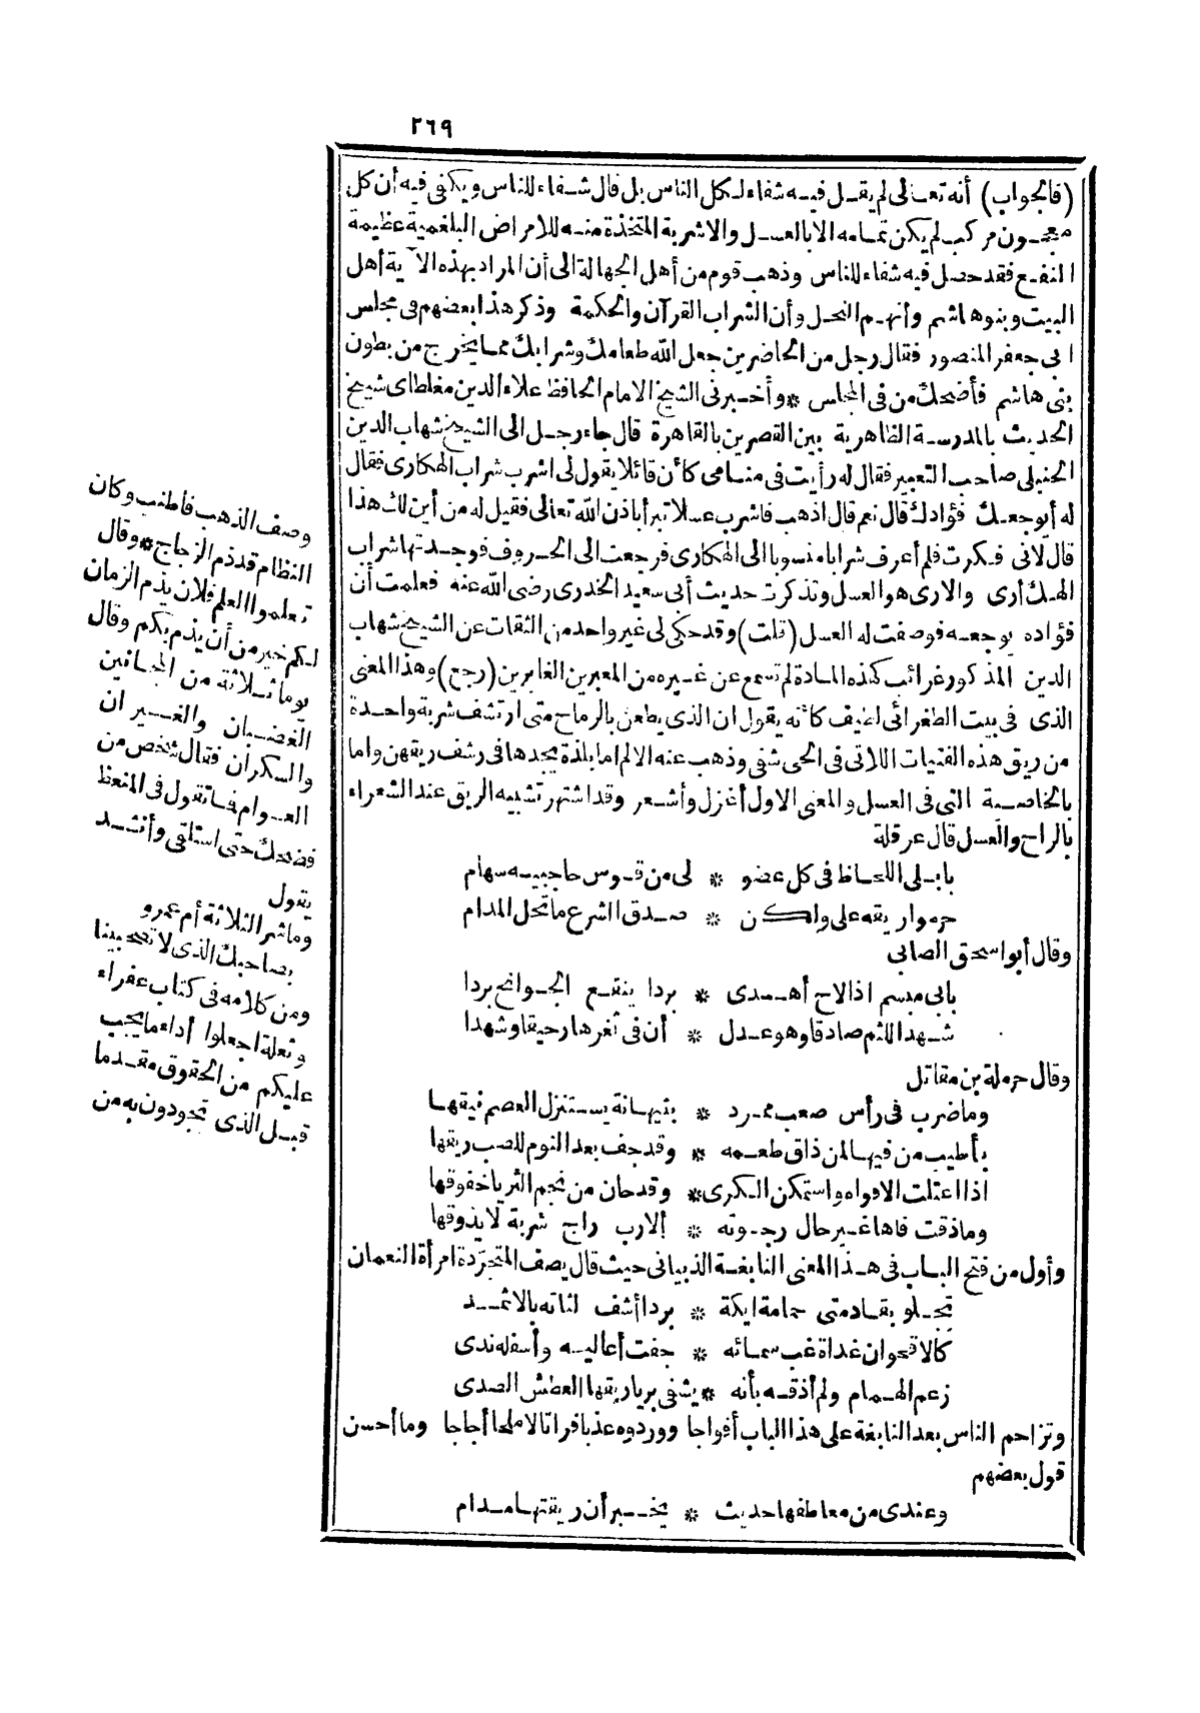 ٢٦٩
(فالجواب) أنه تعالى لم يقل فيه شفاء لكل الناس بل قال شفاء للناس ويكفي فيه أن كل
معجون مركب لم يكن تمامه الا بالعسل والاشربة المتخذة منه للامراض البلغمية عظيمة
النفع فقد حصل فيه شفاء للناس وذهب قوم من أهل الجهالة الى أن المراد بهذه الآية أهل
البيت وبنو هاشم وأنهم النحل وأن الشراب القرآن والحكمة وذكر هذا بعضهم فى مجلس
ابى جعفر المنصور فقال رجل من الحاضرين جعل الله طعامك وشرابك مما يخرج من بطون
بنى هاشم فأضحك من فى المجلس * وأخبرنى الشيخ الامام الحافظ علاء الدين مغلطاى شيخ
الحديث بالمدرسة الظاهرية بين القصرين بالقاهرة قال جاء رجل الى الشيخ شهاب الدين
الحنبلى صاحب التعبير فقال له رأيت فى منامى كأن قائلا يقول لى اشرب شراب الهكارى فقال
له أيوجعك فؤادك قال نعم قال اذهب فاشرب عسلا تبرأ باذن الله تعالى فقيل له من أين لك هذا
قال لانى فكرت فلم أعرف شرابا منسوبا الى الهكارى فرجعت الى الحروف فوجدتها شراب
الهك أرى والارى هو العسل وتذكرت حديث أبى سعيد الخدرى رضى الله عنه فعلمت أن
فؤاده يوجعه فوصفت له العسل (قلت) وقد حكى لى غير واحد من الثقات عن الشيخ شهاب
الدين المذكور غرائب كهذه المادة لم تسمع عن غيره من المعبرين الغابرين (رجع) وهذا المعنى
الذى فى بيت الطغرائى لطيف كأنه يقول ان الذى يطعن بالرماح متى ارتشف شربة واحدة
من ريق هذه الفتيات اللاتى فى الحى شفى وذهب عنه الالم اما بلذة يجدها فى رشف ريقهن واما
بالخاصية التى فى العسل والمعنى الاول أغزل وأشعر وقد اشتهر تشبيه الريق عند الشعراء
بالراح والعسل قال عرقلة
بابلى اللحاظ فى كل عضو * لى من قوس حاجبيه سهام
حرموا ريقه على ولكن * صدق الشرع ما تحل المدام
وقال أبو اسحق الصابى
بابى مبسم اذ الاح أهدى * بردا ينقع الجوانح بردا
شهد اللثم صادقا وهو عدل * أن فى ثغرها رحيقا وشهدا
وقال حرملة بن مقاتل
وما ضرب فى رأس صعب ممرد * بتيهانة يستنزل العصم نيقها
بأطيب من فيها لمن ذاق طعمه * وقد جف بعد النوم للصب ريقها
اذا اعتلت الافواه واستمكن الكرى * وقد حان من نجم الثريا خفوقها
وما ذقت فاها غير حال رجوته * ألا رب راج شربة لا يذوقها
وأول من فتح الباب فى هذا المعنى النابغة الذبيانى حيث قال يصف المتجردة امرأة النعمان
تجلو بقادمتى حمامة ايكة * بردا أشف لثاته بالاثمد
كالاقحوان غداة غب سمائه * جفت أعاليه وأسفله ندى
زعم الهمام ولم أذقه بأنه * يشفى بريا ريقها العطش الصدى
وتزاحم الناس بعد النابغة على هذا الباب أفواجا ووردوه عذبا فراتا لا ملحا أجاجا وما أحسن
قول بعضهم
وعندى من معاطفها حديث * يخبر أن ريقتها مدام
وصف الذهب فأطنب وكان
النظام قد ذم الزجاج * وقال
تعلموا العلم فلان يذم الزمان
لكم خير من أن يذم بكم وقال
يوما ثلاثة من المجانين
الغضبان والغيران
والسكران فقال شخص من
العوام فما تقول فى المنعظ
فضحك حتى استلقى وأنشد
يقول
وما شر الثلاثة أم عمرو
بصاحبك الذى لا تصحبينا
ومن كلامه فى كتاب عفراء
وثعلة اجعلوا أداء ما يجب
عليكم من الحقوق مقدما
قبل الذى تجودون به من